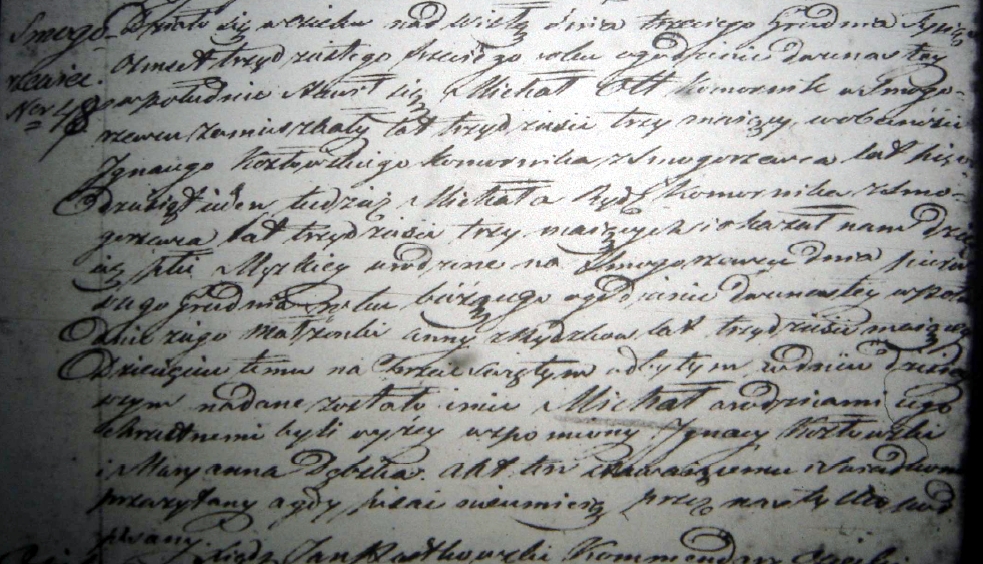 Smogo- Działo się w Osieku nad Wisłą dnia trzeciego Grudnia Tysiąc
rzewiec. Osmset trzydziestego roku ogodzinie dwunastey
Ner 48 wpołudnie Stawił się Michał Ott Komornik w Smogo-
rzewcu zamieszkały lat trzydzieści trzy maiący wobecności
Ignacego Kozłowskiego Komornika z Smogorzewca lat
Dziesiąt ieden tudzież Michała Rydz Komornika z Smo-
gorzewca lat trzydzieści trzy maiących i okazał nam dzie
ię płci Męzkiey urodzone na Smogorzewcu dnia pierw
szego Grudnia roku bieżącego ogodzinie dwunastey wpołu
Dnie ziego małżonki Anny lat trzydzieści maiącey
Dziecięciu temu na Chrzcie Świętym odbytym wdniu dzisiey
szym nadane zostało imie Michał a rodzicami iego
Chrzestnemi byli wyżey wspomniony Ignacy Kozłowski
i Maryanna Dębska. Akt ten stawaiącemu i Swiadkom
przeczytany a gdy pisać nieumieią przez nas tylko pod
pisany.
Xiądz Jan Kommendarz